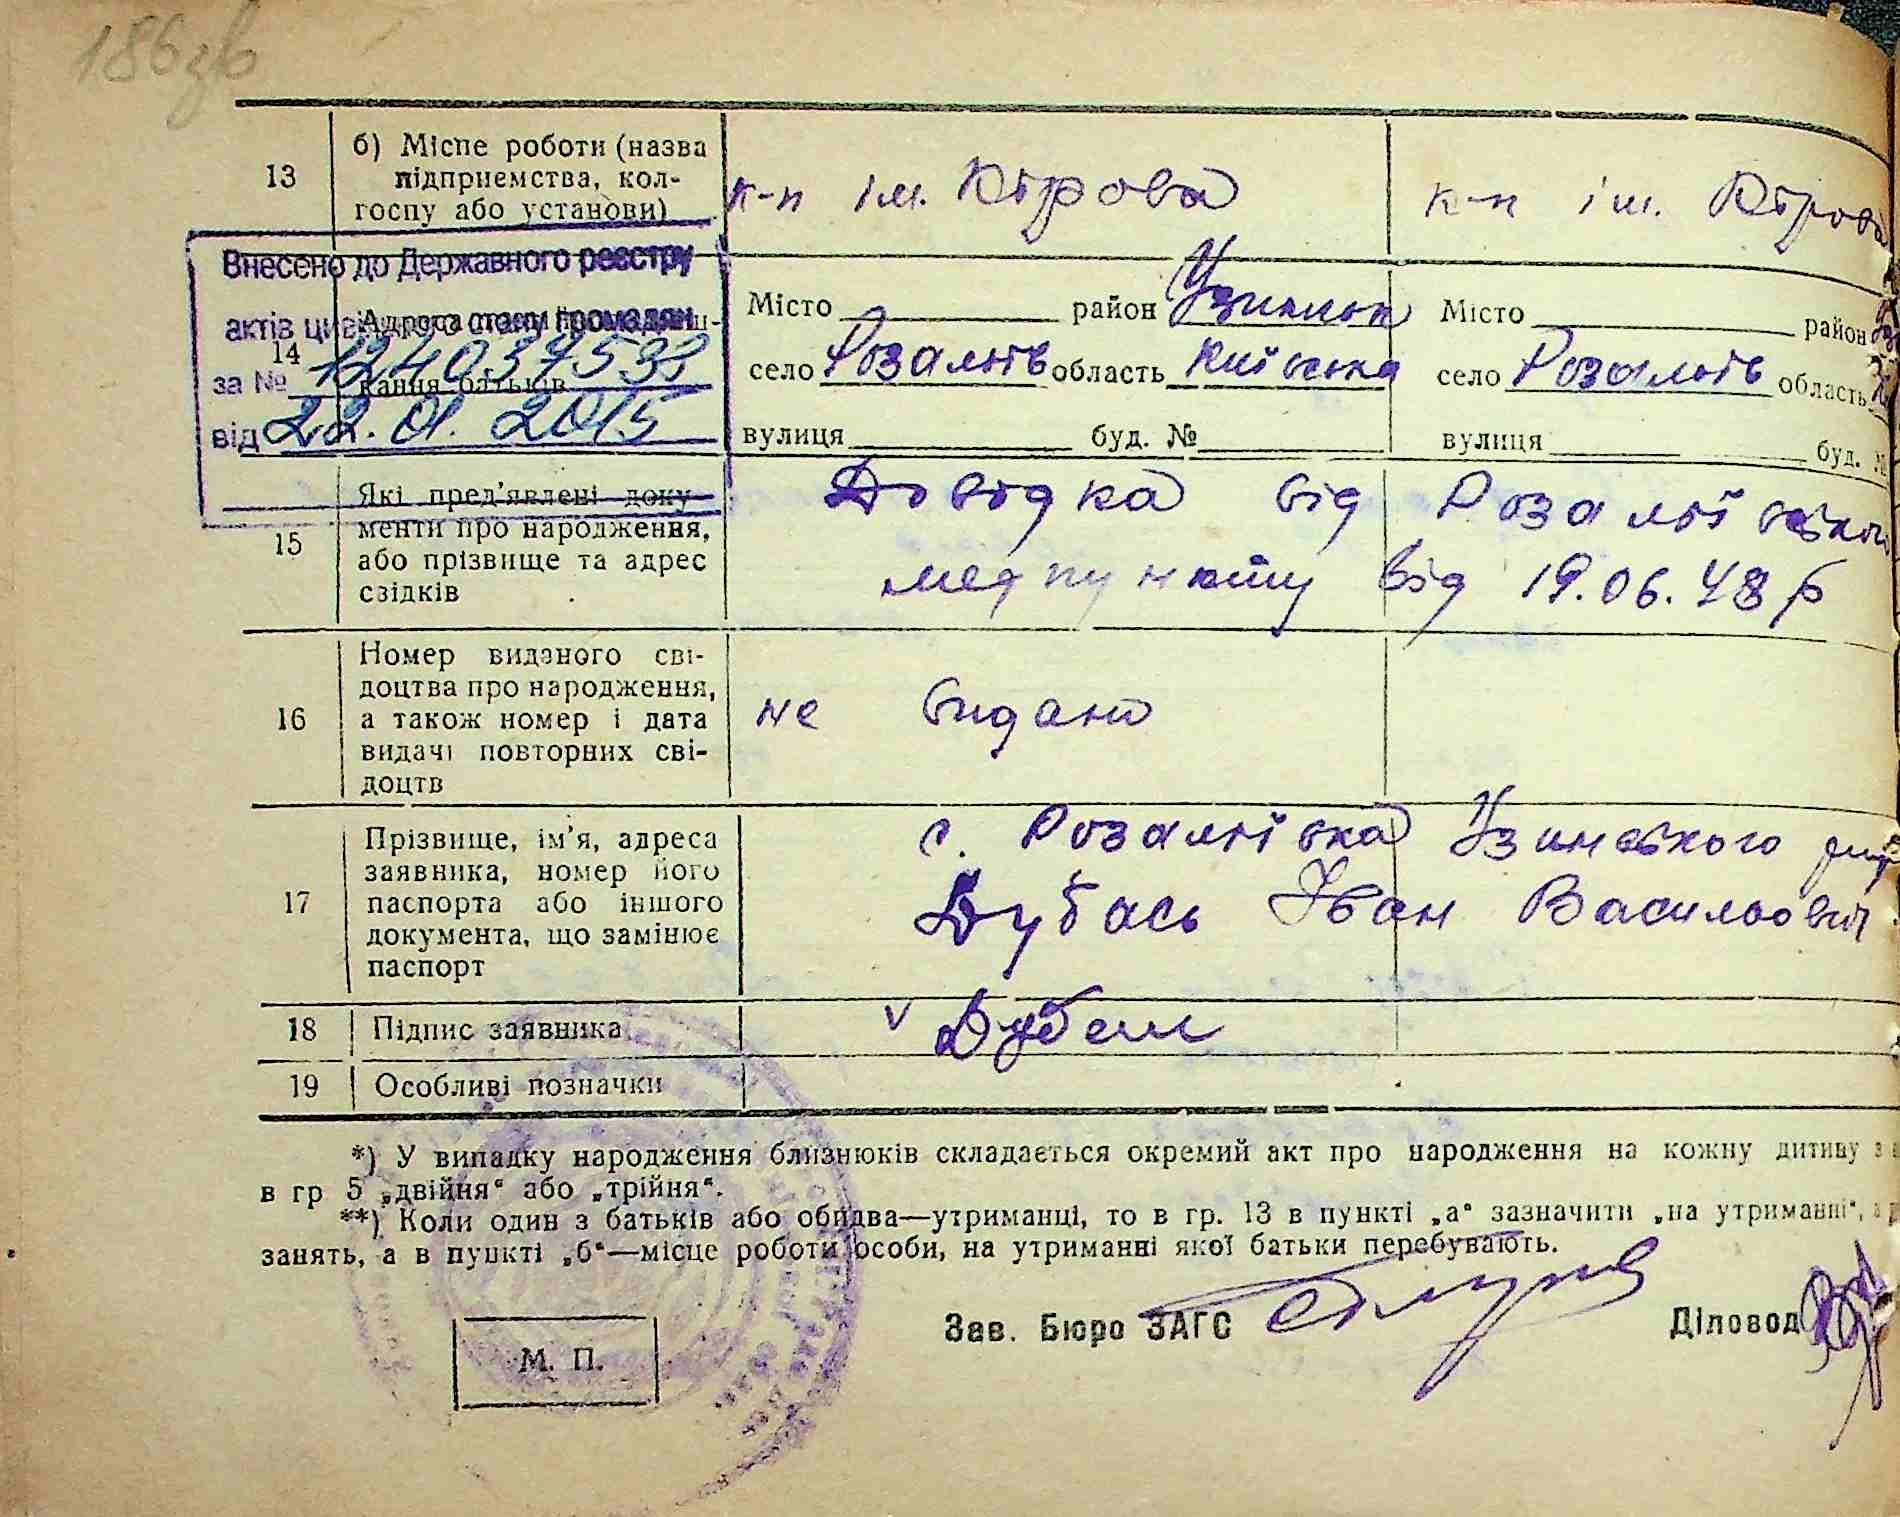 186зв
13
б) Місце роботи (назва
підприємства, кол-
госпу або установи)
к-п ім. Кірова
к-п ім. Кірова
Внесено до Державного реєстру
актів цивільного стану громадян
за № 12403753
від 22.01.2015
14
Адреса
вання батьків
Місто район Узинськ
село Розаліїв область Київська
вулиця буд. №
Місто район
село Розаліїв область
вулиця буд. №
15
Які пред'явлені доку
менти про народження,
або прізвище та адрес
свідків
Довідка від Розаліївського
медпункту від 19.06.48 р
16
Номер виданого сві-
доцтва про народження,
а також номер і дата
видачі повторних сві-
доцтв
не видано
17
Прізвище, ім'я, адреса
заявника, номер його
паспорта або іншого
документа, що замінює
паспорт
с. Розаліївка Узинського р-ну
Дубась Іван Васильович
18
Підпис заявника
v
19
Особливі позначки
*) У випадку народження близнюків складається окремий акт про народження на кожну дитину з
в гр 5 „двійня“ або „трійня“.
**) Коли один з батьків або обидва—утриманці, то в гр. 13 в пункті „а“ зазначити „на утриманні“,
занять, а в пункті „б“—місце роботи особи, на утриманні якої батьки перебувають.
Зав. Бюро ЗАГС
Діловод
М. П.